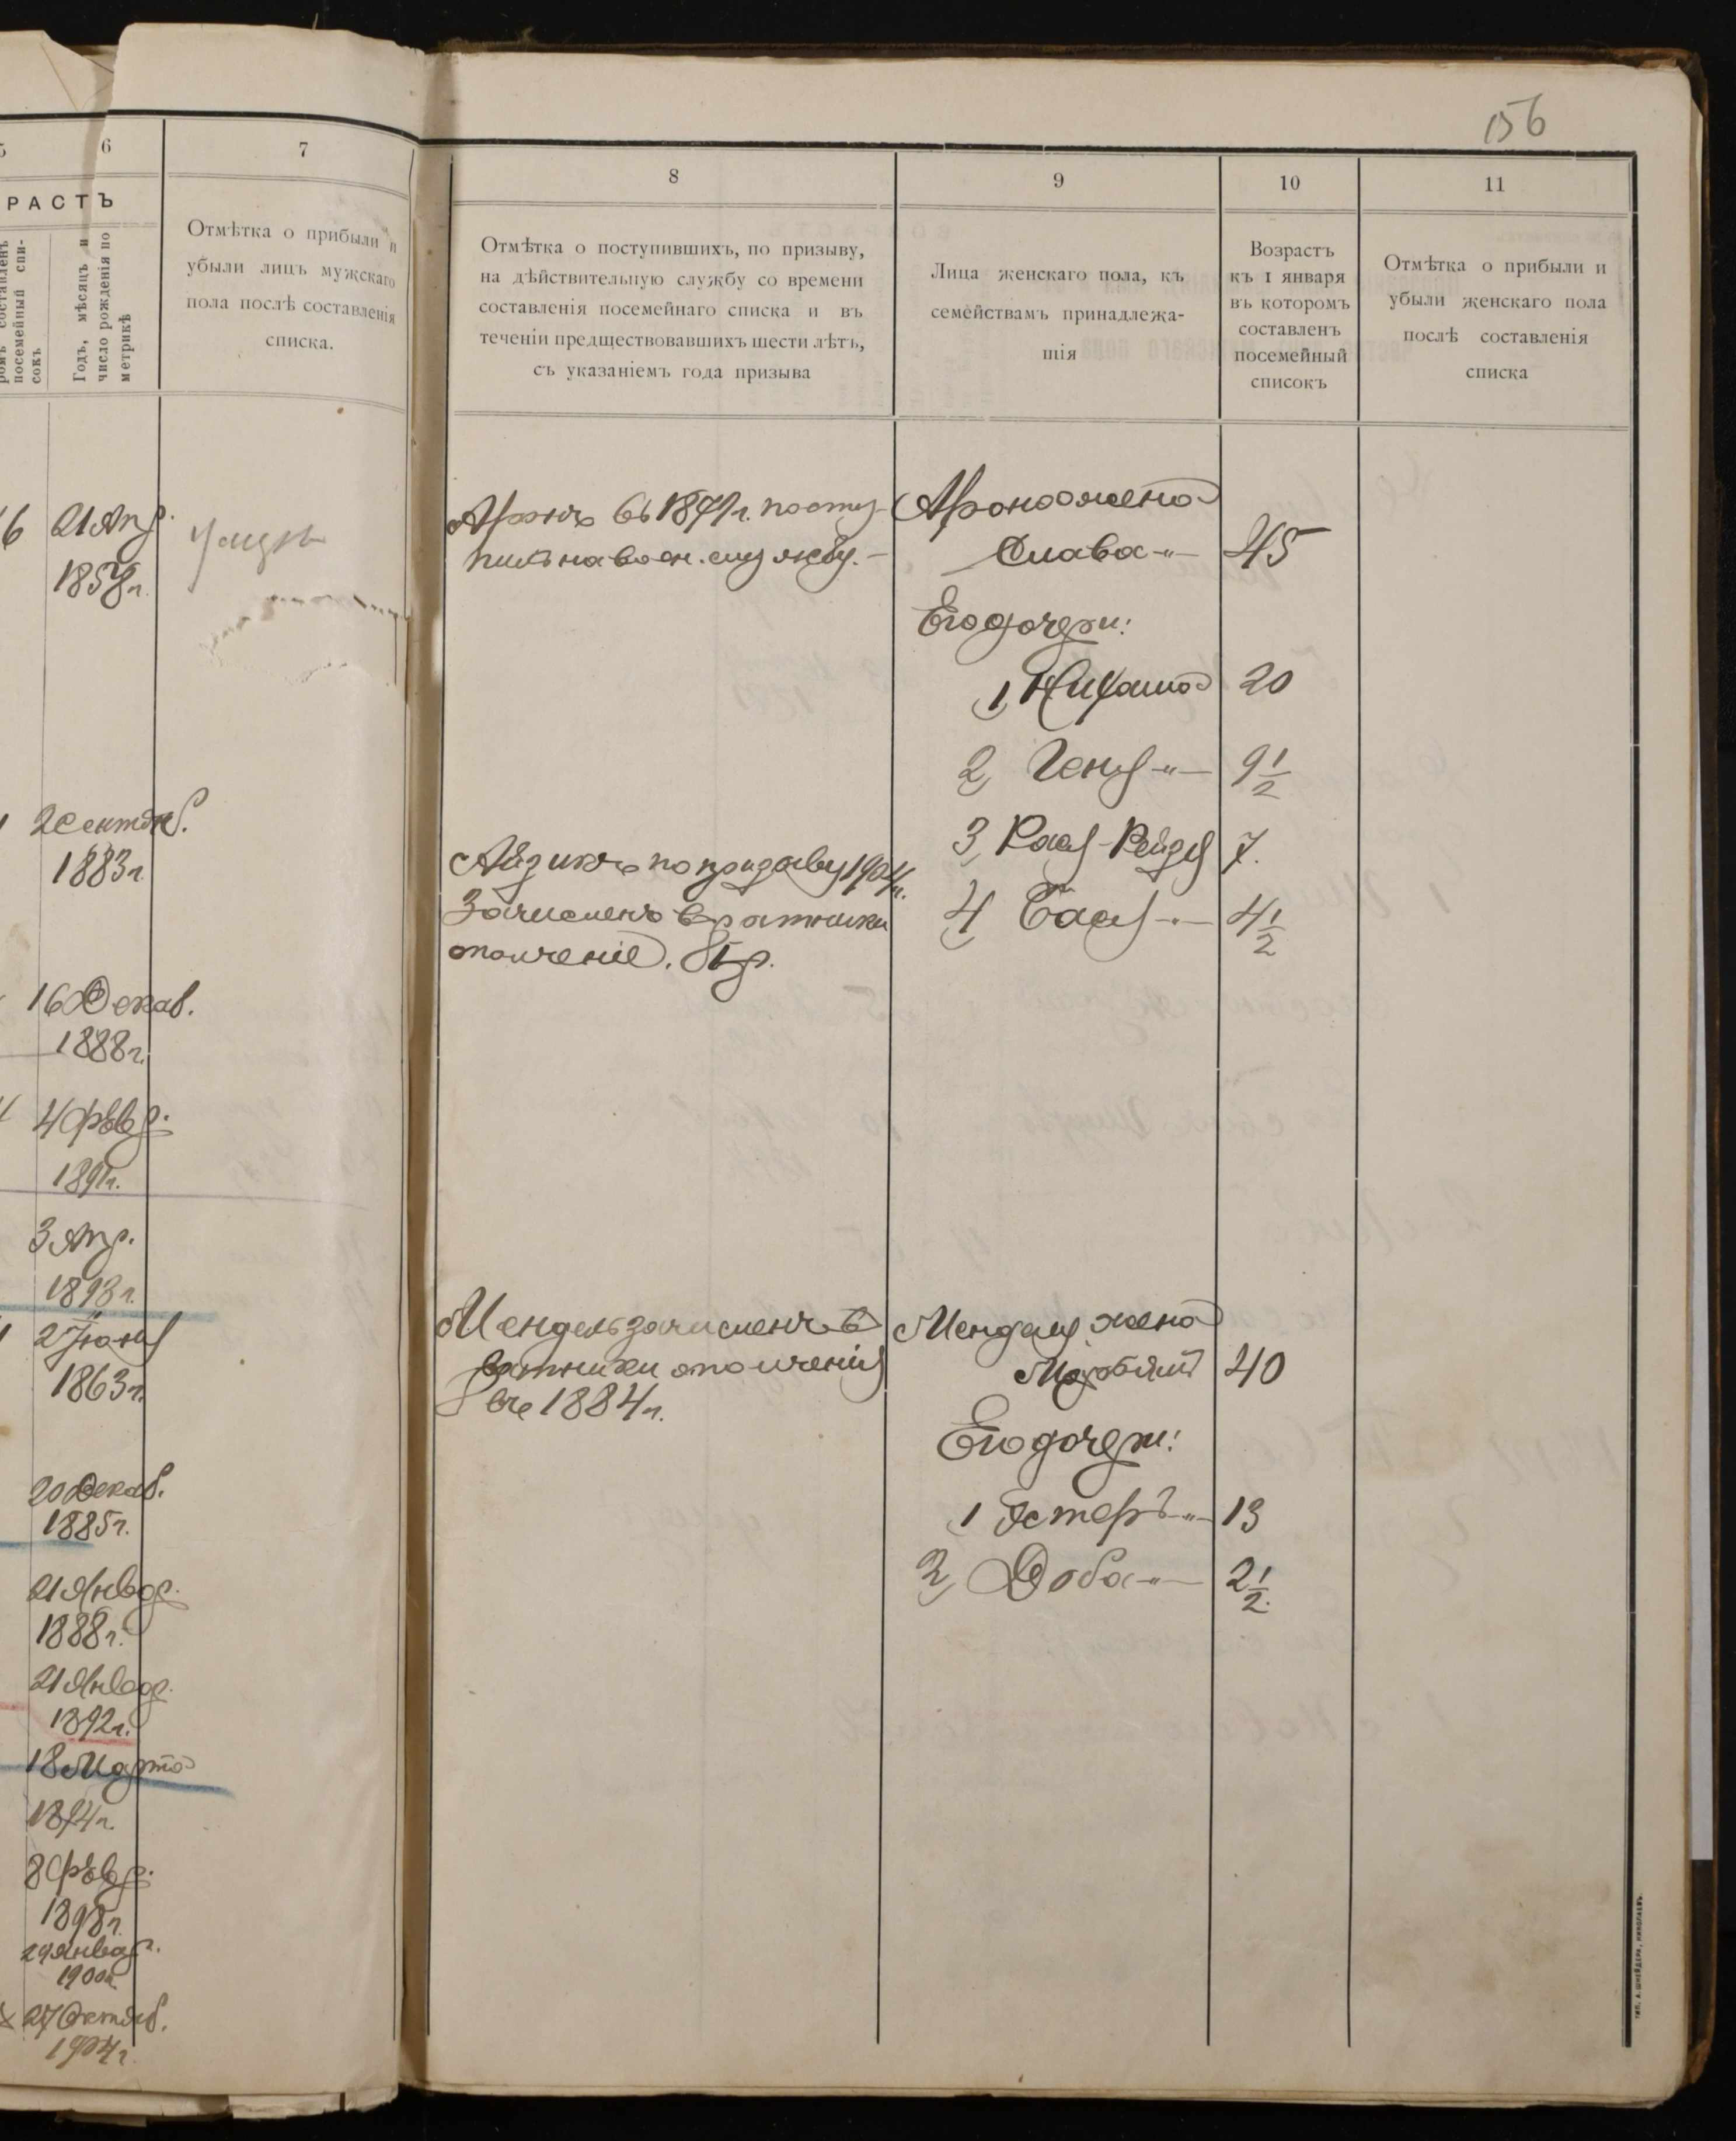 156
5
6
7
РАСТЪ
ромъ составленъ
посемейный спи-
сокъ
Годъ, мѣсяцъ и
число рожденія по
метрикѣ
Отмѣтка о прибыли и
убыли лицъ мужскаго
пола послѣ составленія
списка.
6
21 Апр.
1858 г.
2 Сентяб.
1883 г.
16 Декаб.
1888 г.
4 Февр.
1891 г.
3 Апр.
1893 г.
2 Іюня
1863 г.
20 Декаб.
1885 г.
21 Январ.
1888 г.
21 Январ.
1892 г.
18 Марта
1894 г.
8 Февр.
1898 г.
29 Январ.
1900 г.
27 Октяб.
1904 г.
8
9
10
11
Отмѣтка о поступившихъ, по призыву,
на дѣйствительную службу со времени
составленія посемейнаго списка и въ
теченіи предшествовавшихъ шести лѣтъ,
съ указаніемъ года призыва
Лица женскаго пола, къ
семействамъ принадлежа-
щія
Возрастъ
къ 1 января
въ которомъ
составленъ
посемейный
списокъ
Отмѣтка о прибыли и
убыли женскаго пола
послѣ составленія
списка
Аронъ въ 1879 г. посту-
пилъ на воен. службу.-
Айзикъ по призыву 1904 г.
Зачисленъ в ратники
ополченія. I р.
Мендель зачисленъ в
ратники ополченія
въ 1884 г.
Арона жена
Слава -"- 45
Его дочери:
1, 20
2, Геня -"- 9 1/2
3, Рася-Рейзя 7.
4, Бася -"- 4 1/2
Менделя жена
40
Его дочери:
1, Эстеръ -"- 13
2, Доба -"- 2 1/2
ТИП. А. ШНЕЙДЕРА, НИКОЛАЕВЪ.